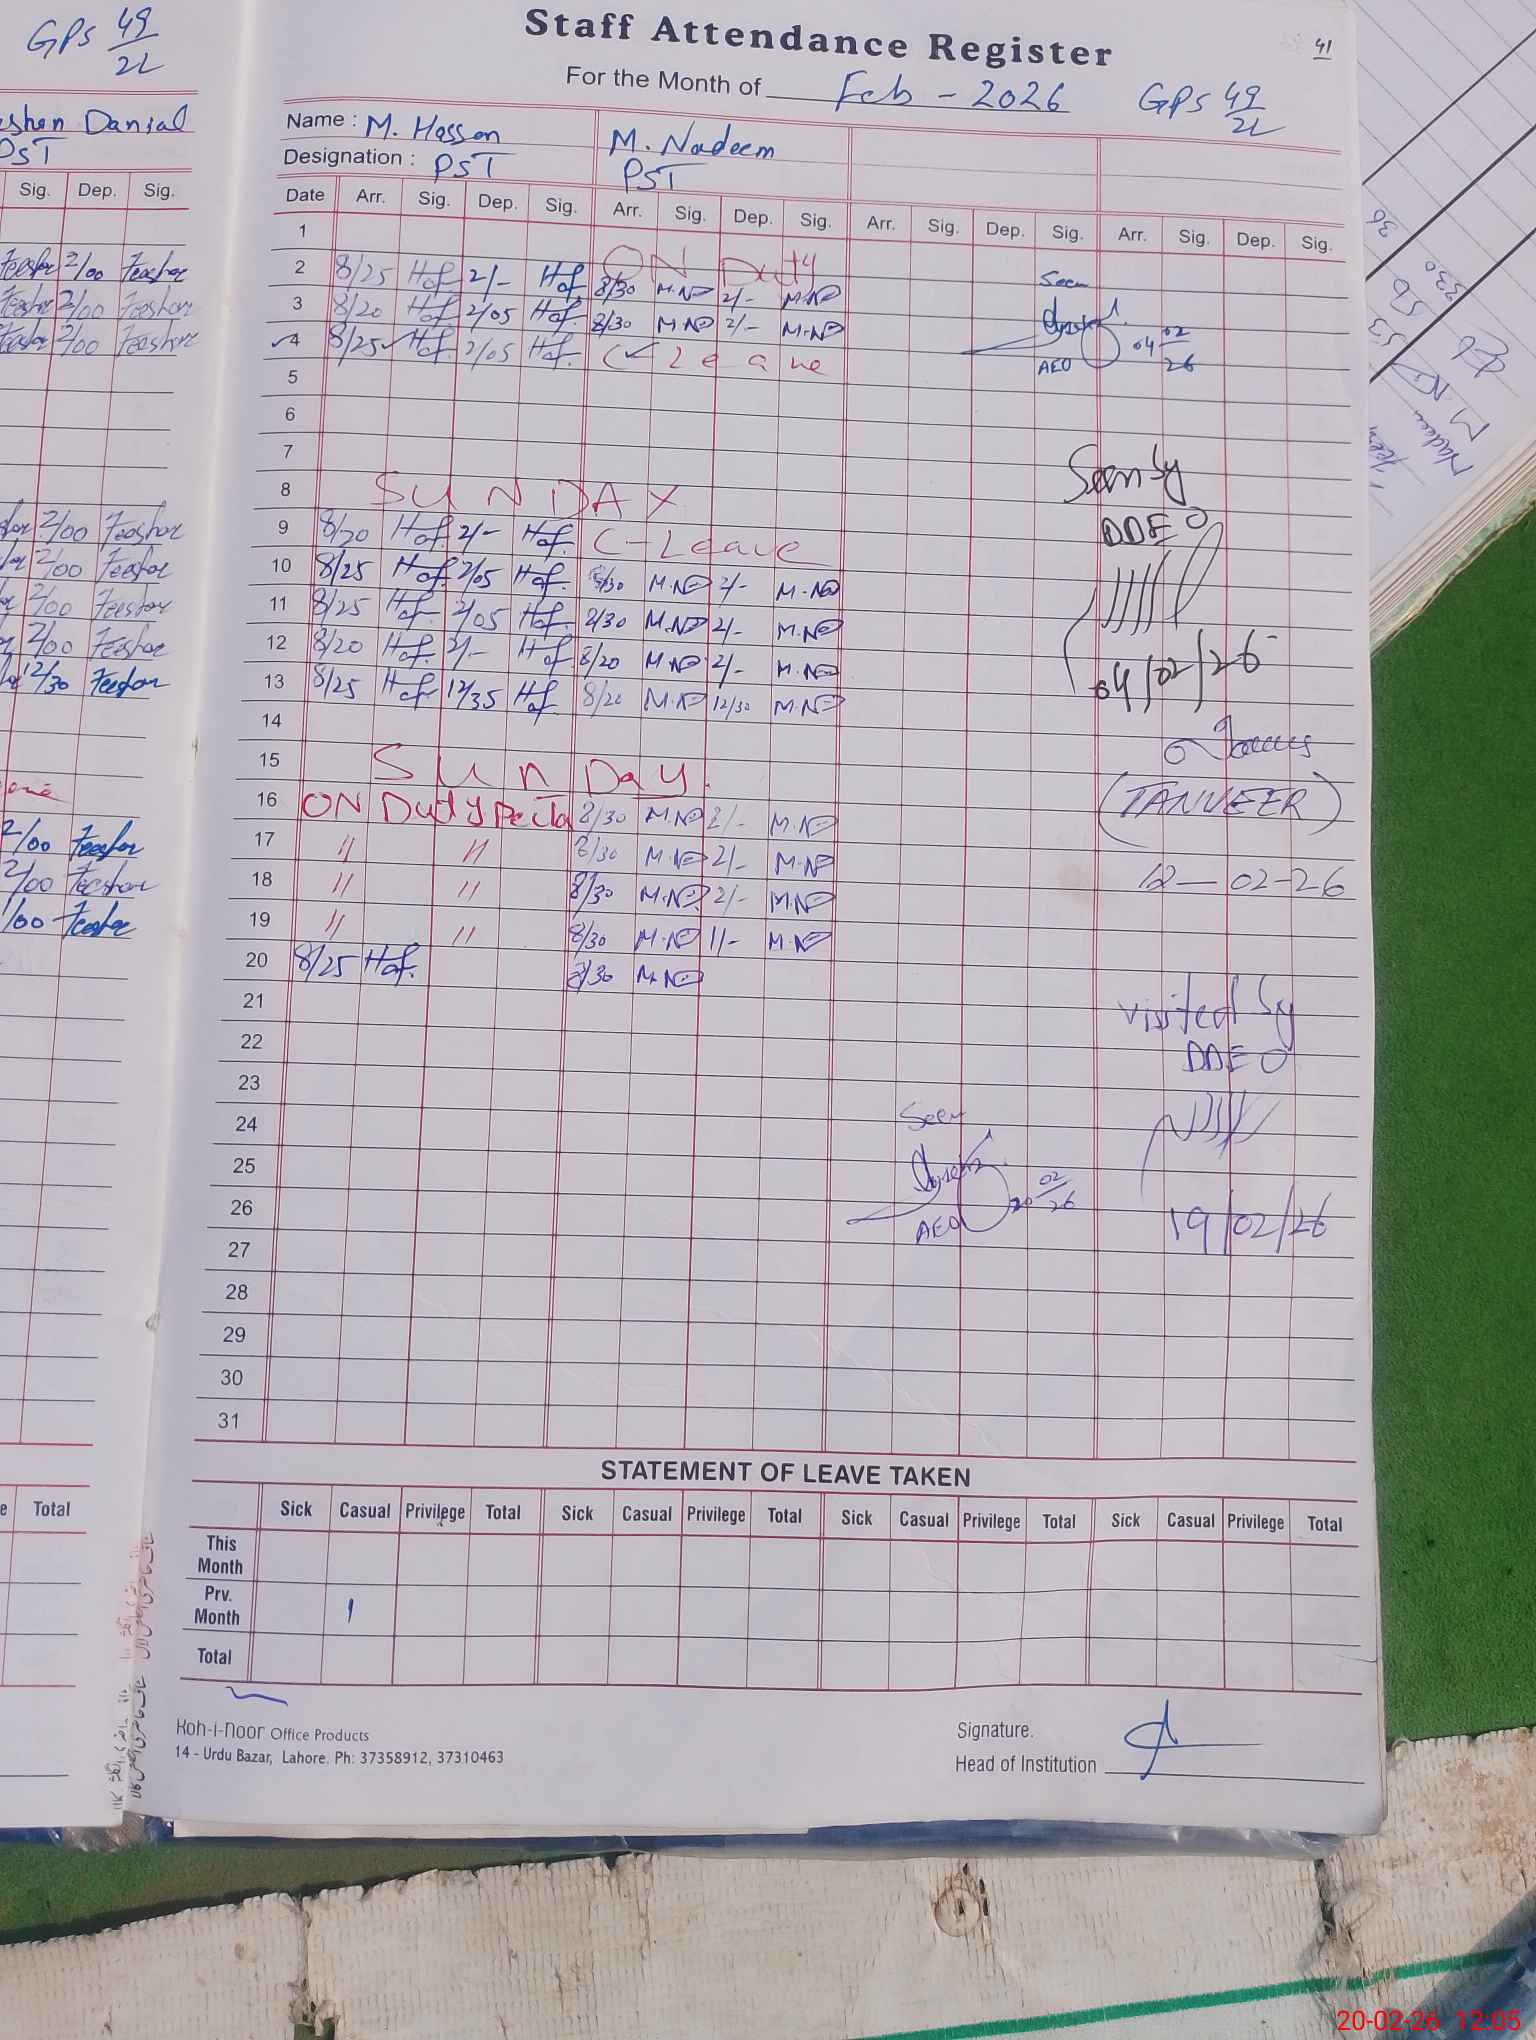 GPS 49/2L
eshan Danial
PST
Sig. Dep. Sig.
2/00
2/00
2/00
2/00
2/00
2/00
2/00
12/30
2/00
2/00
1/00
Total
Staff Attendance Register
41
For the Month of Feb - 2026 GPS 49/2L
Name : M. Hassan M. Nadeem
Designation : PST PST
Date Arr. Sig. Dep. Sig. Arr. Sig. Dep. Sig. Arr. Sig. Dep. Sig. Arr. Sig. Dep. Sig.
1
ON Duty
2 8/25 Haf 2/- Haf 8/30 M.ND 2/- M.ND
3 8/20 Haf 2/05 Haf. 8/30 M.ND 2/- M.ND
4 8/25 Haf. 2/05 Haf. C Leave
Seen
AEO
04 02/26
5
6
7
8 SUNDAY
9 8/20 Haf. 2/- Haf. C-Leave
10 8/25 Haf. 2/05 Haf. 8/30 M.ND 2/- M.ND
11 8/25 Haf. 2/05 Haf. 8/30 M.ND 2/- M.ND
12 8/20 Haf. 2/- Haf 8/20 M.ND 2/- M.ND
13 8/25 Haf 12/35 Haf. 8/20 M.ND 12/30 M.ND
Seen by
DDEO
04/02/26
14
15 Sunday.
16 ON Duty 8/30 M.ND 2/- M.ND
17 " " 8/30 M.ND 2/- M.ND
18 " " 8/30 M.ND 2/- M.ND
19 " " 8/30 M.ND 11/- M.ND
20 8/25 Haf. 8/30 M.ND
(TANVEER)
12-02-26
21
22
23
24
25
26
27
28
29
30
31
visited by
DDEO
19/02/26
Seen
AEO
20 02/26
STATEMENT OF LEAVE TAKEN
Sick Casual Privilege Total Sick Casual Privilege Total Sick Casual Privilege Total Sick Casual Privilege Total
This Month
Prv. Month 1
Total
Koh-i-noor Office Products
14 - Urdu Bazar, Lahore. Ph: 37358912, 37310463
Signature.
Head of Institution
20-02-26 12:05